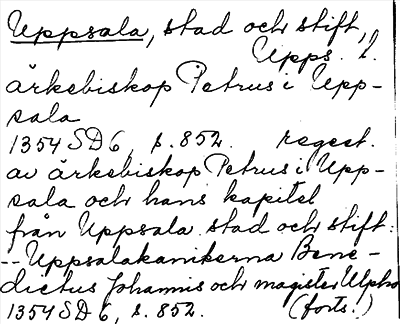 Uppsala, stad och stift,
Upps. l.
ärkebiskop Petrus i Upp-
sala
1354 SD 6, s. 852. regest.
av ärkebiskop Petrus i Upp-
sala och hans kapitel
från Uppsala stad och stift:
-- Uppsalakanikerna Bene-
dictus Johannis och magister Ulpho
1354 SD 6, s. 852. (forts.)